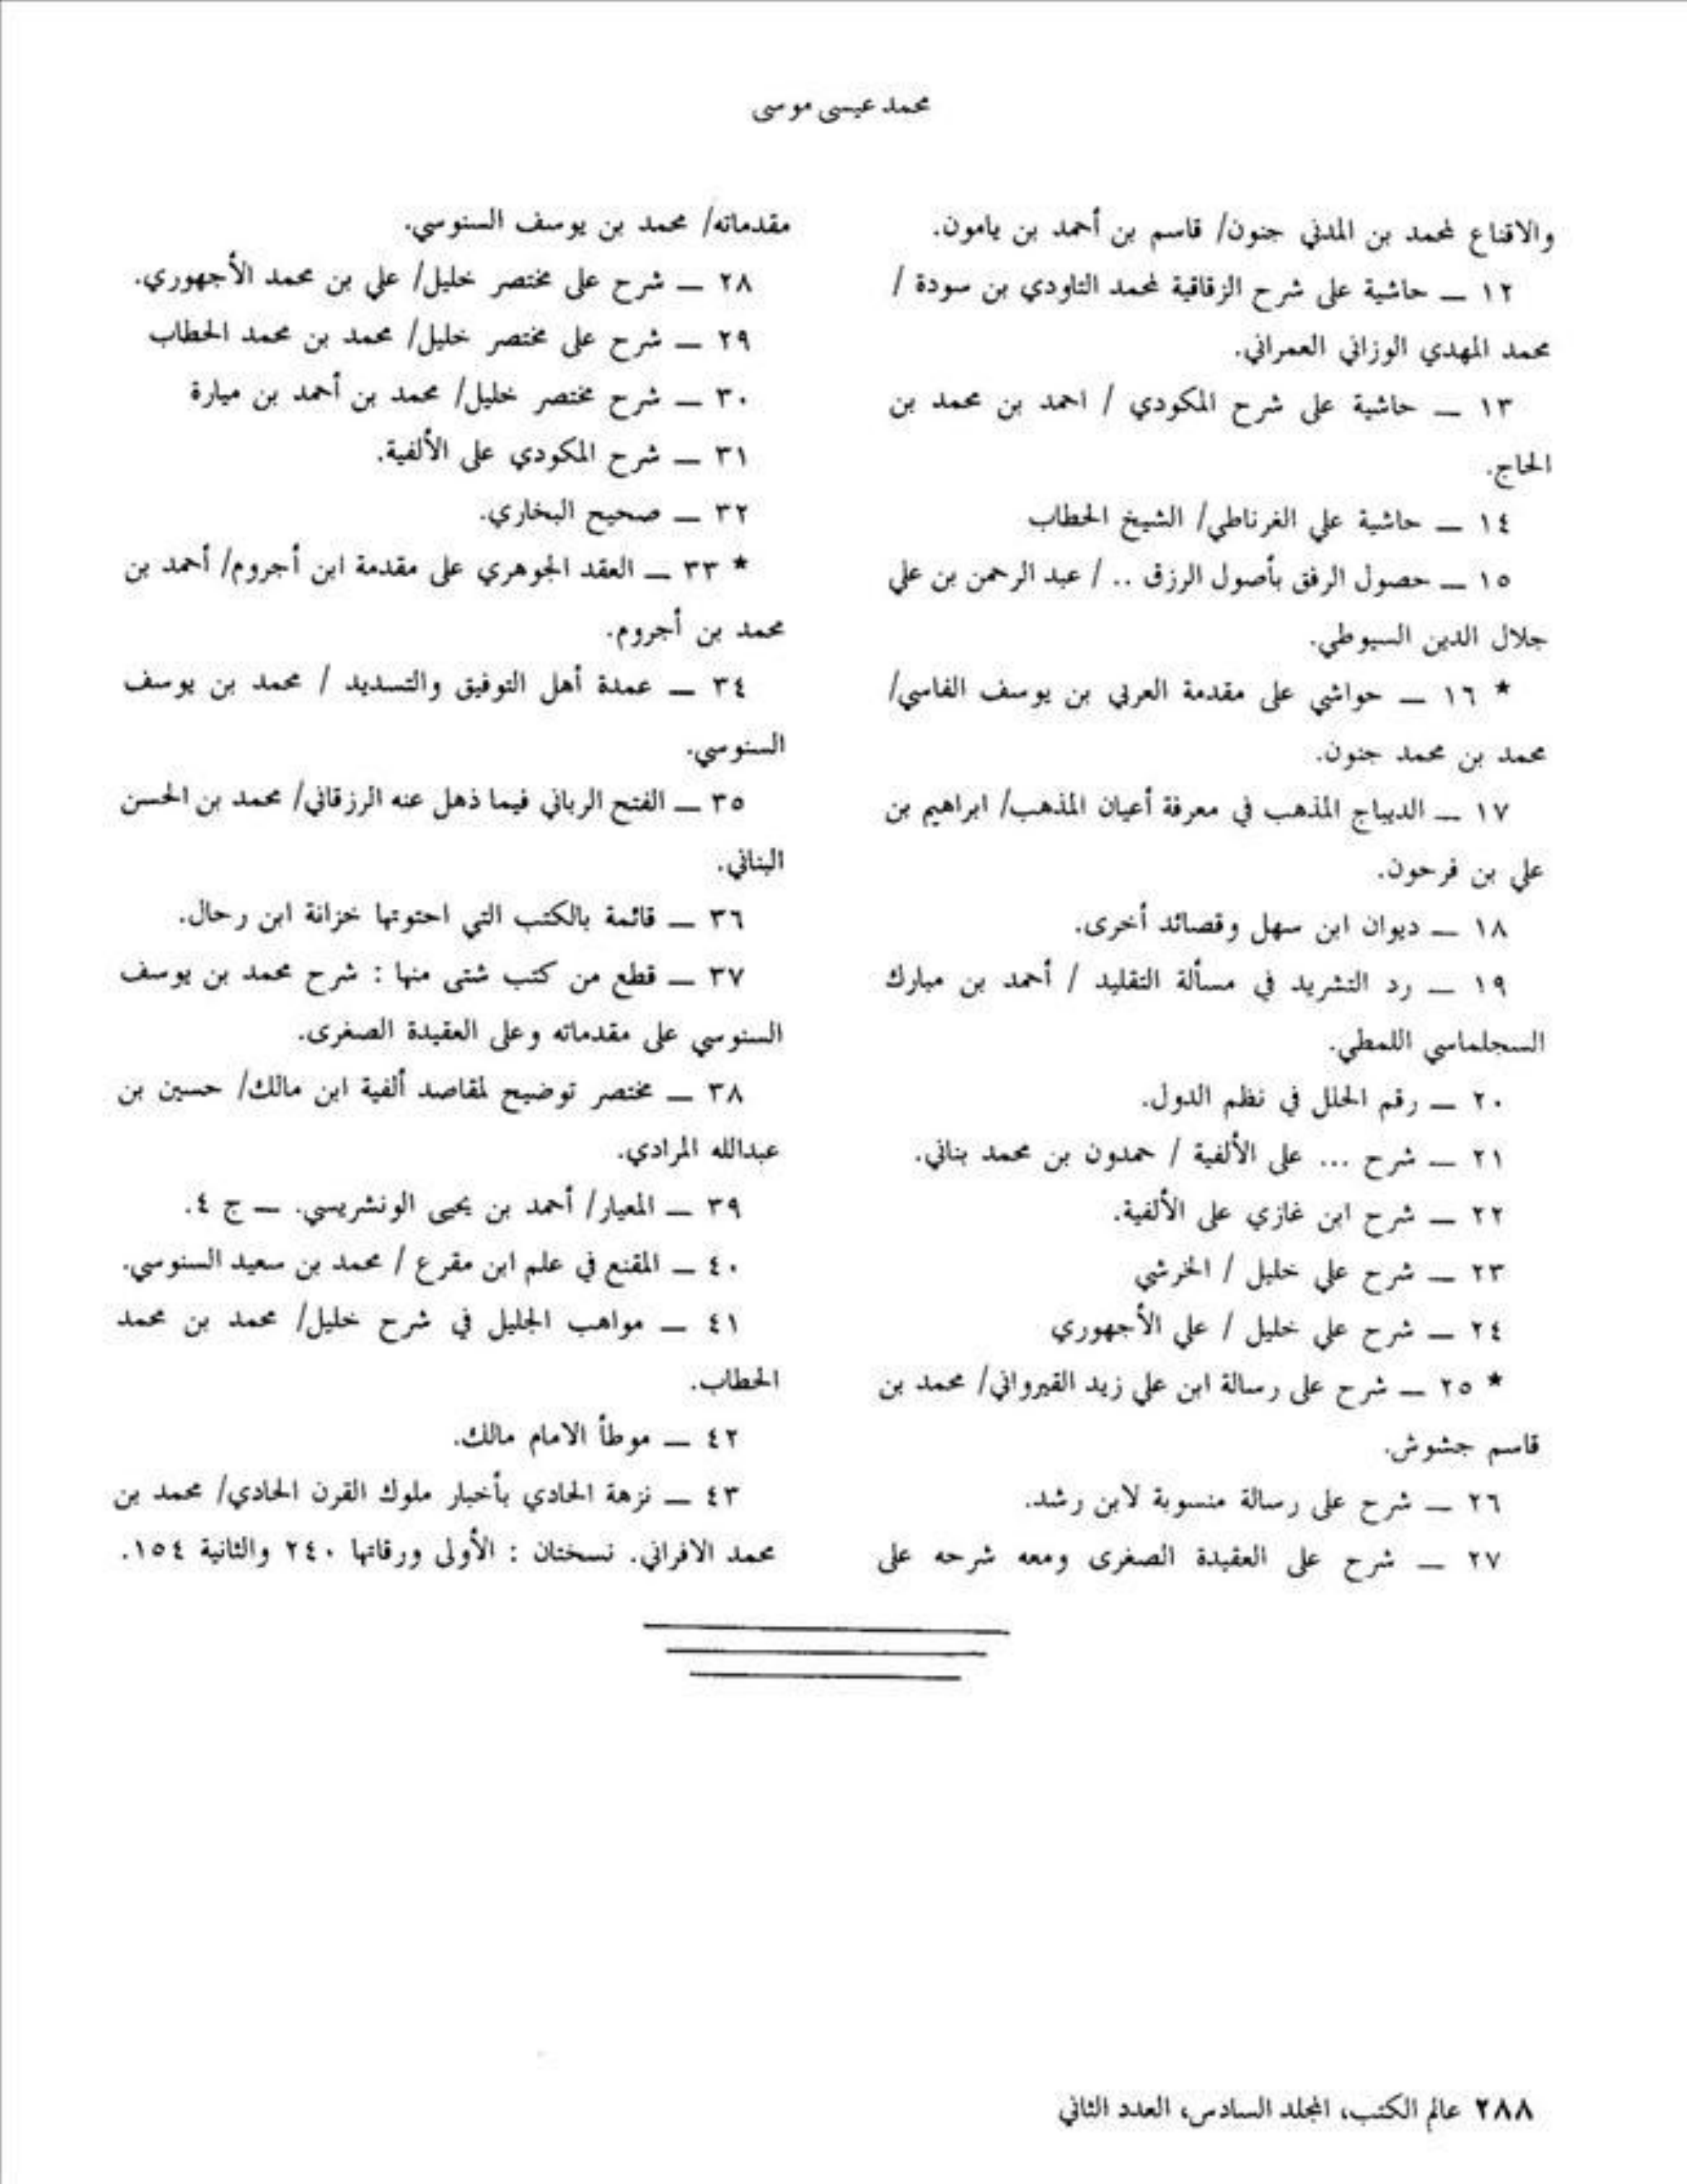 محمد عيسى موسى
والاقناع لمحمد بن المدني جنون/ قاسم بن أحمد بن يامون.
١٢ ــ حاشية على شرح الزقاقية لمحمد التاودي بن سودة /
محمد المهدي الوزاني العمراني.
١٣ ــ حاشية على شرح المكودي / احمد بن محمد بن
الحاج.
١٤ ــ حاشية علي الغرناطي/ الشيخ الحطاب
١٥ ــ حصول الرفق بأصول الرزق .. / عبد الرحمن بن علي
جلال الدين السيوطي.
* ١٦ ــ حواشي على مقدمة العربي بن يوسف الفاسي/
محمد بن محمد جنون.
١٧ ــ الديباج المذهب في معرفة أعيان المذهب/ ابراهيم بن
علي بن فرحون.
١٨ ــ ديوان ابن سهل وقصائد أخرى.
١٩ ــ رد التشريد في مسألة التقليد / أحمد بن مبارك
السجلماسي اللمطي.
٢٠ ــ رقم الحلل في نظم الدول.
٢١ ــ شرح ... على الألفية / حمدون بن محمد بناني.
٢٢ ــ شرح ابن غازي على الألفية.
٢٣ ــ شرح علي خليل / الخرشي
٢٤ ــ شرح علي خليل / علي الأجهوري
* ٢٥ ــ شرح على رسالة ابن علي زيد القيرواني/ محمد بن
قاسم جشوش.
٢٦ ــ شرح على رسالة منسوبة لابن رشد.
٢٧ ــ شرح على العقيدة الصغرى ومعه شرحه على
مقدماته/ محمد بن يوسف السنوسي.
٢٨ ــ شرح على مختصر خليل/ علي بن محمد الأجهوري.
٢٩ ــ شرح على مختصر خليل/ محمد بن محمد الحطاب
٣٠ ــ شرح مختصر خليل/ محمد بن أحمد بن ميارة
٣١ ــ شرح المكودي على الألفية.
٣٢ ــ صحيح البخاري.
* ٣٣ ــ العقد الجوهري على مقدمة ابن أجروم/ أحمد بن
محمد بن أجروم.
٣٤ ــ عمدة أهل التوفيق والتسديد / محمد بن يوسف
السنوسي.
٣٥ ــ الفتح الرباني فيما ذهل عنه الرزقاني/ محمد بن الحسن
البناني.
٣٦ ــ قائمة بالكتب التي احتوتها خزانة ابن رحال.
٣٧ ــ قطع من كتب شتى منها : شرح محمد بن يوسف
السنوسي على مقدماته وعلى العقيدة الصغرى.
٣٨ ــ مختصر توضيح لمقاصد ألفية ابن مالك/ حسين بن
عبدالله المرادي.
٣٩ ــ المعيار/ أحمد بن يحيى الونشريسي. ــ ج ٤.
٤٠ ــ المقنع في علم ابن مقرع / محمد بن سعيد السنوسي.
٤١ ــ مواهب الجليل في شرح خليل/ محمد بن محمد
الحطاب.
٤٢ ــ موطأ الامام مالك.
٤٣ ــ نزهة الحادي بأخبار ملوك القرن الحادي/ محمد بن
محمد الافراني. نسختان : الأولى ورقاتها ٢٤٠ والثانية ١٥٤.
٢٨٨ عالم الكتب، المجلد السادس، العدد الثاني